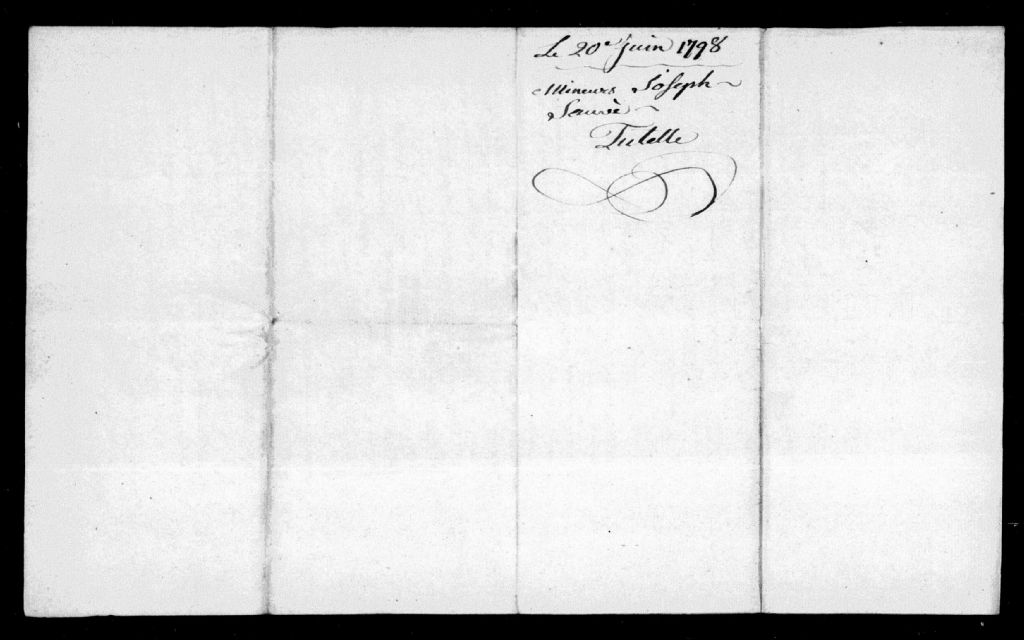 Le 20e juin 1798
Mineurs Joseph
Sauvé
Tutelle